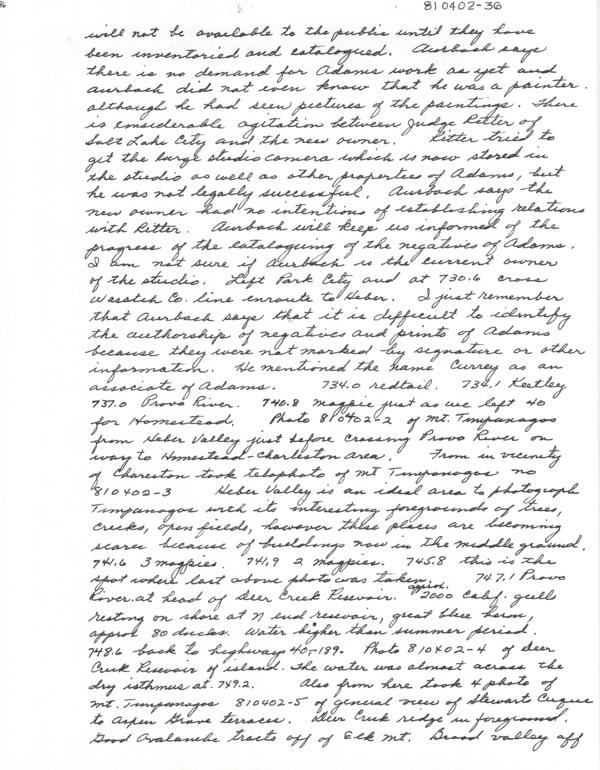 36
810402-36
will not be available to the public until they have
been inventoried and catalogued. Aurbach says
there is no demand for Adams work as yet and
Aurbach did not even know that he was a painter.
although he had seen pictures of the paintings. There
is considerable agitation between Judge Ritter of
Salt Lake City and the new owner. Ritter tried to
git the large studio camera which is now stored in
the studio as well as other properties of Adams, but
he was not legally successful. Aurbach says the
new owner had no intentions of establishing relations
with Ritter. Aurbach will keep us informed of the
progress of the cataloguing of the negatives of Adams.
I am not sure if Aurbach is the current owner
of the studio. Left Park City and at 730.6 cross
Wasatch Co. line enroute to Heber. I just remember
that Aurbach says that it is difficult to identify
the authorship of negatives and prints of Adams
because they were not marked by signature or other
information. He mentioned the name Currey as an
associate of Adams. 734.0 redtail. 734.1 Keetley
737.0 Provo River. 740.8 magpie just as we left 40
for Homestead. Photo 810402-2 of Mt. Timpanogos
from Heber Valley just before crossing Provo River on
way to Homestead-Charleston area. From in vicinity
of Charleston took telephoto of Mt Timpanogos no
810402-3 Heber Valley is an ideal area to photograph
Timpanogos with its interesting foregrounds of trees,
creeks, open fields, however these places are becoming
scarce because of buildings now in the middle ground.
741.6 3 magpies. 741.9 2 magpies. 745.8 this is the
spot where last above photo was taken. 747.1 Provo
River at head of Deer Creek Resevoir. approx. 2000 Calif. gulls
resting on shore at N end resevoir, great blue heron,
approx 80 ducks. Water higher than summer period.
748.6 back to highway 40-189. Photo 810402-4 of Deer
Creek Resevoir of island. The water was almost across the
dry isthmus at 749.2. Also from here took 4 photo of
Mt. Timpanogos 810402-5 of general view of Stewarts Cirque
to Aspen Grove terraces. Deer Creek ridge in foreground.
Good Avalanche tracts off of Elk Mt. Broad valley off